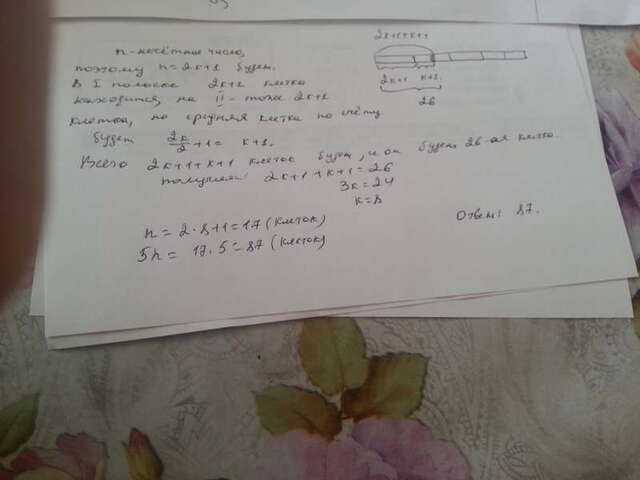 2k+1+k+1
n - нечётные число,
поэтому n = 2k+1 будем.
В I полоске 2k+1 клетка
находится, на II - тоже 2k+1
клетка, но средняя клетка по счёту
будет 2k/2 + 1 = k+1.
2k+1 k+1
26
Всего 2k+1+k+1 клеток будем, и он будем 26-ая клетка.
получаем: 2k+1+k+1=26
3k=24
k=8
n = 2·8+1=17 (клеток)
5n = 17·5=87 (клеток)
Ответ: 87.